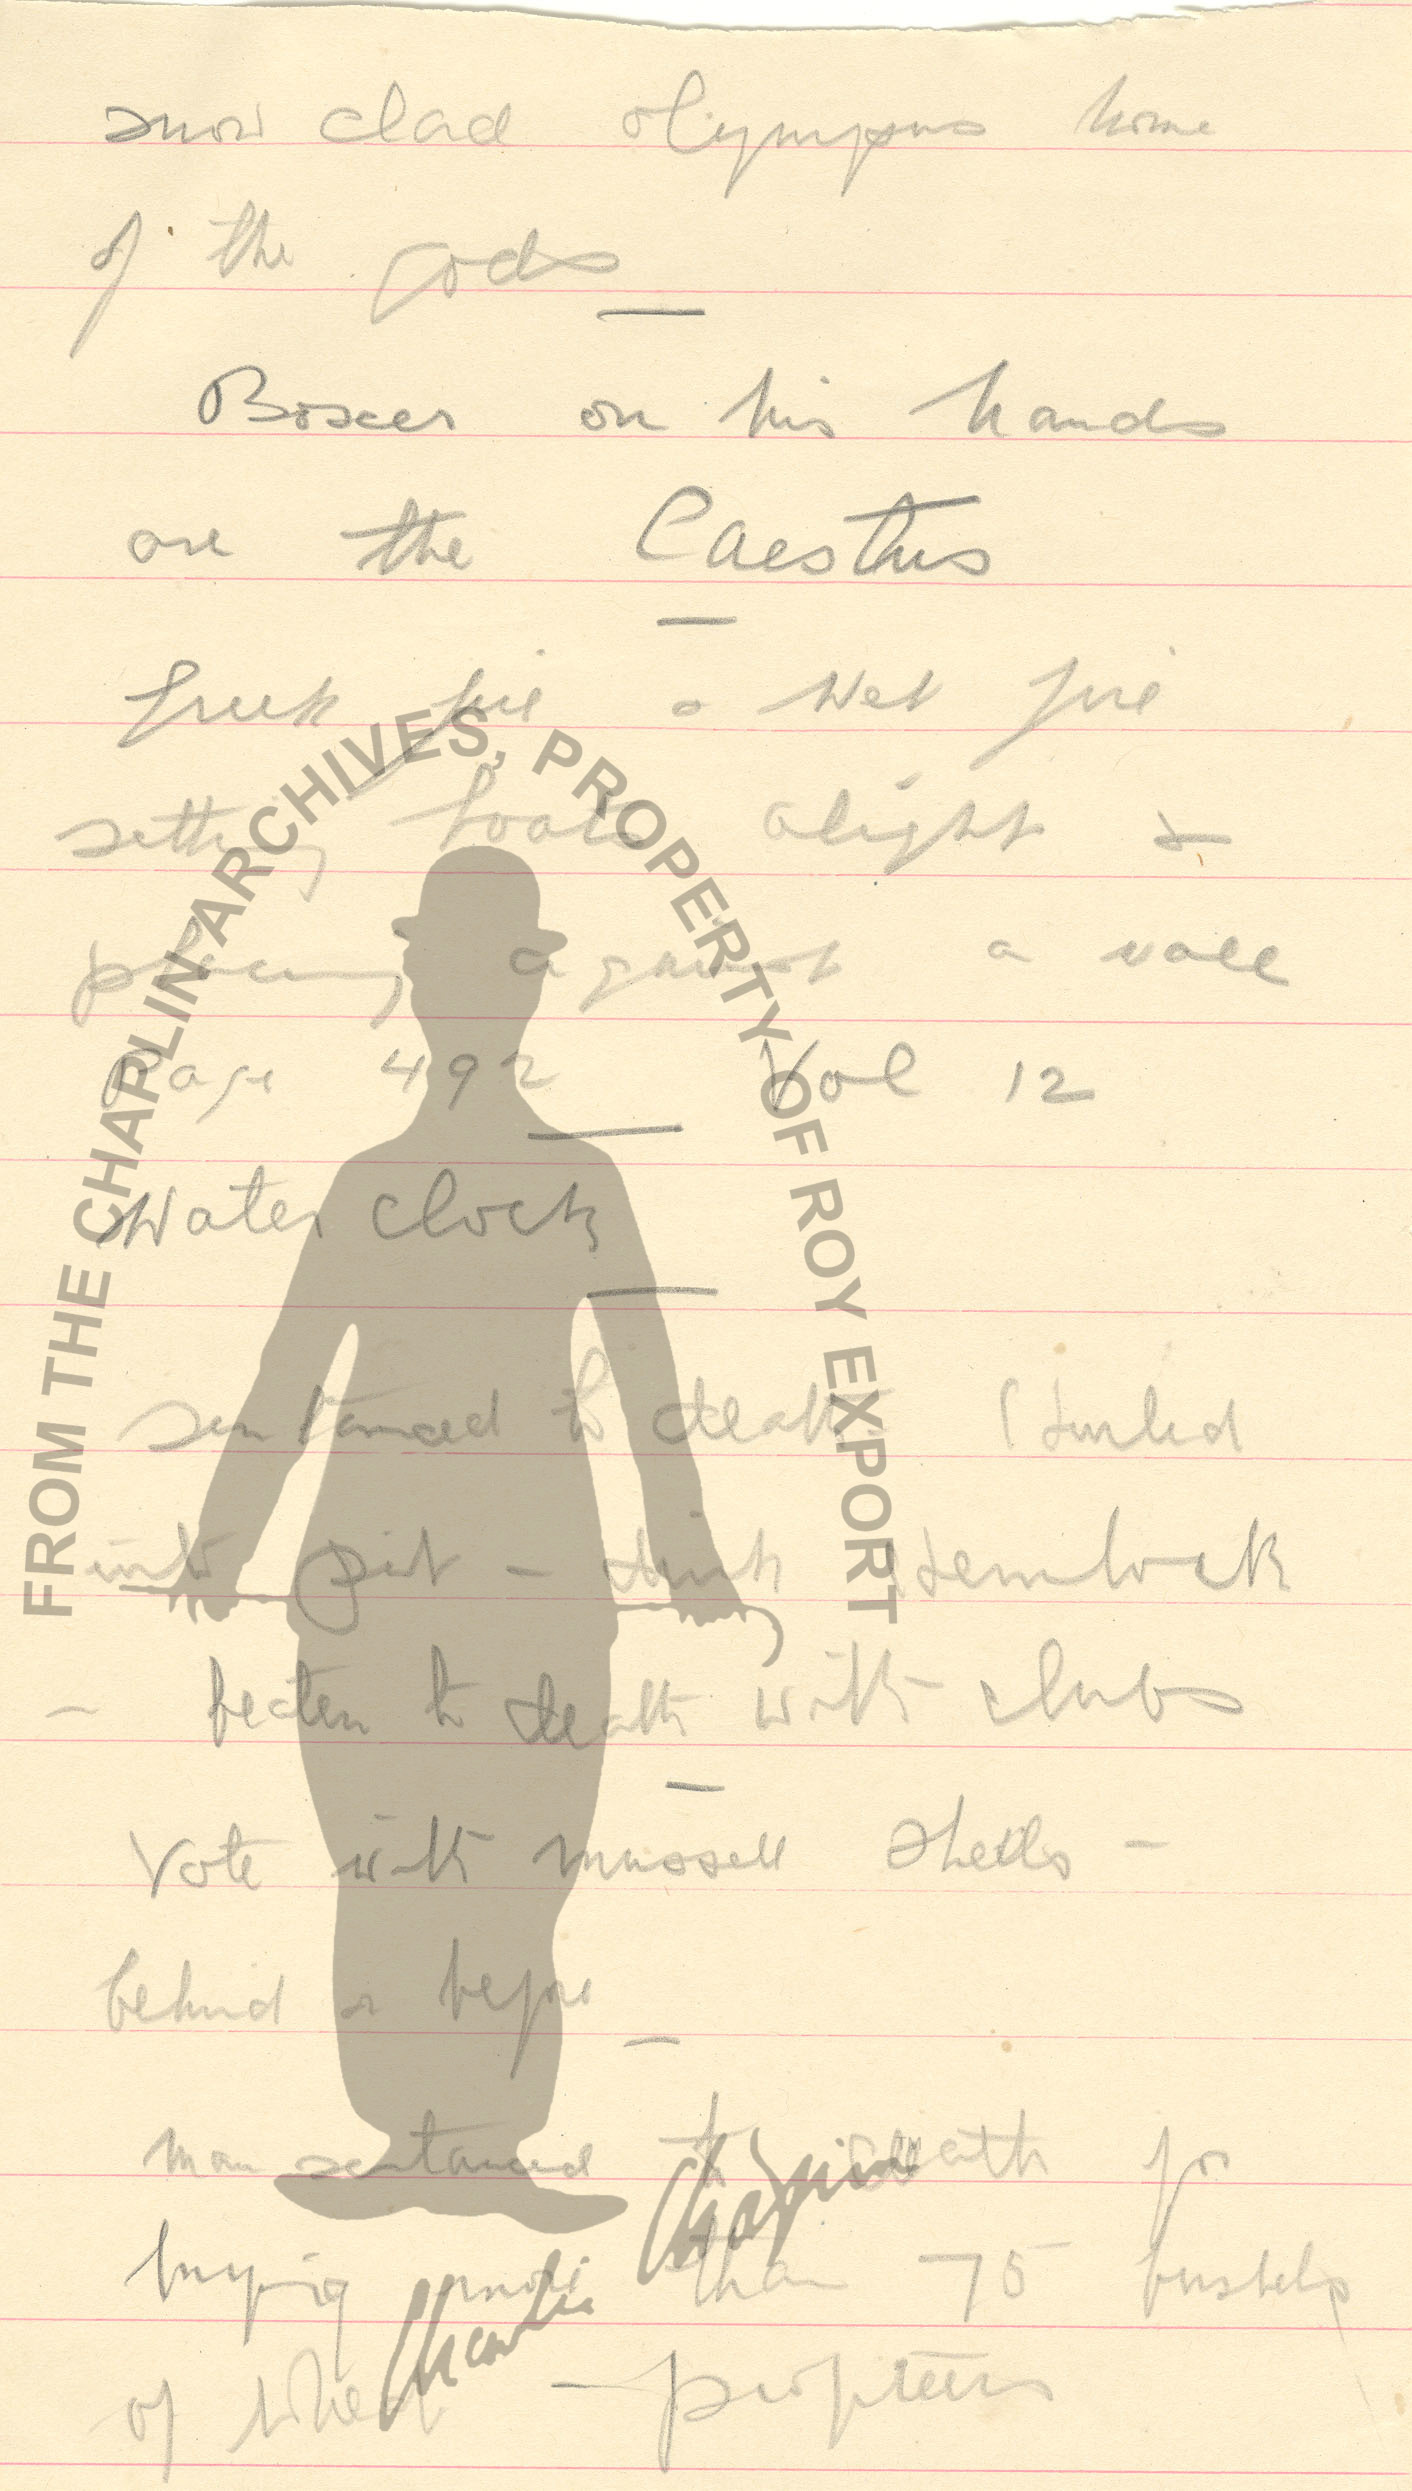 snow clad olympus home
of the gods
—
Boxer on his hands
are the Caestus
—
Greek fire - Wet fire
setting boats alight &
placing against a wall
Page 492 Vol 12
—
Water clock
—
sentanced to death (Hurled
into pit - drink Hemlock
- beaten to death with clubs
—
Vote with mussell shells -
behind or before
—
man sentanced to death for
buying more than 75 bushels
of wheat - profiteers
FROM THE CHAPLIN ARCHIVES, PROPERTY OF ROY EXPORT
Charlie Chaplin™